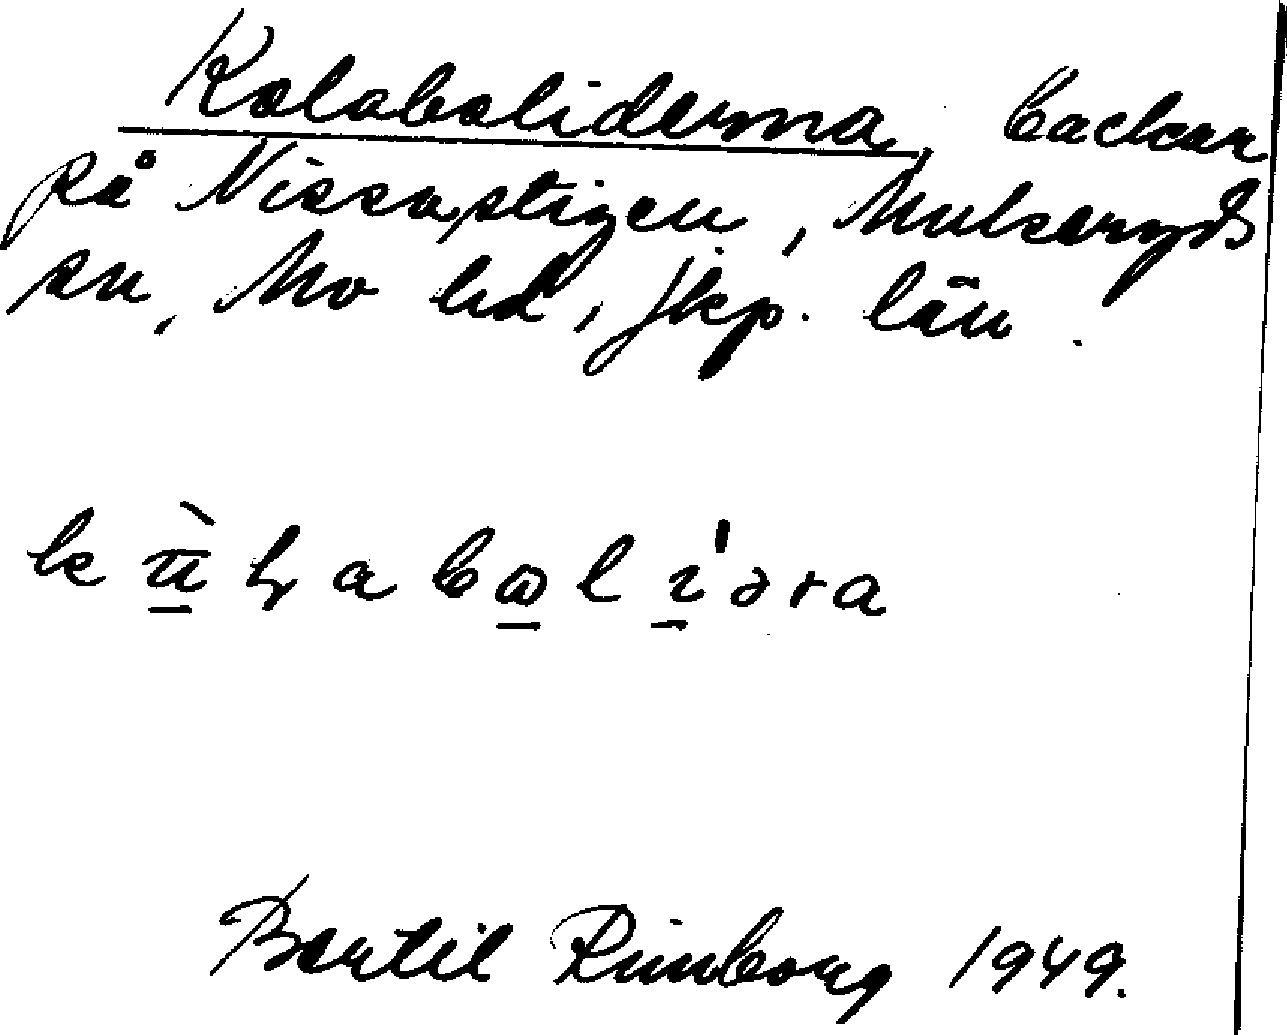 Kolaboliderna, backar
på Nissastigen, Mulseryds
sn, Mo hd, Jkp. län.
Bertil Rimborg 1949.